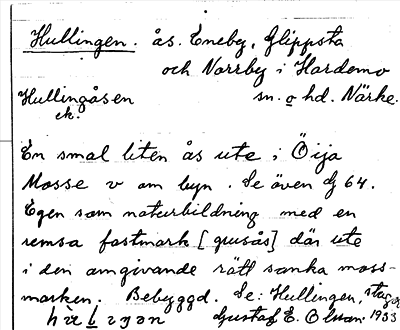 Hullingen. ås. Eneby, Glippsta
och Norrby i Hardemo
Hullingåsen sn. o hd. Närke.
ek.
En smal liten ås ute i Öija
Mosse v om byn. Se även dg 64.
Egen som naturbildning med en
remsa fastmark [grusås] där ute
i den omgivande rätt sanka moss-
marken. Bebyggd. Se: Hullingen,
Gustaf E. Olsson. 1933